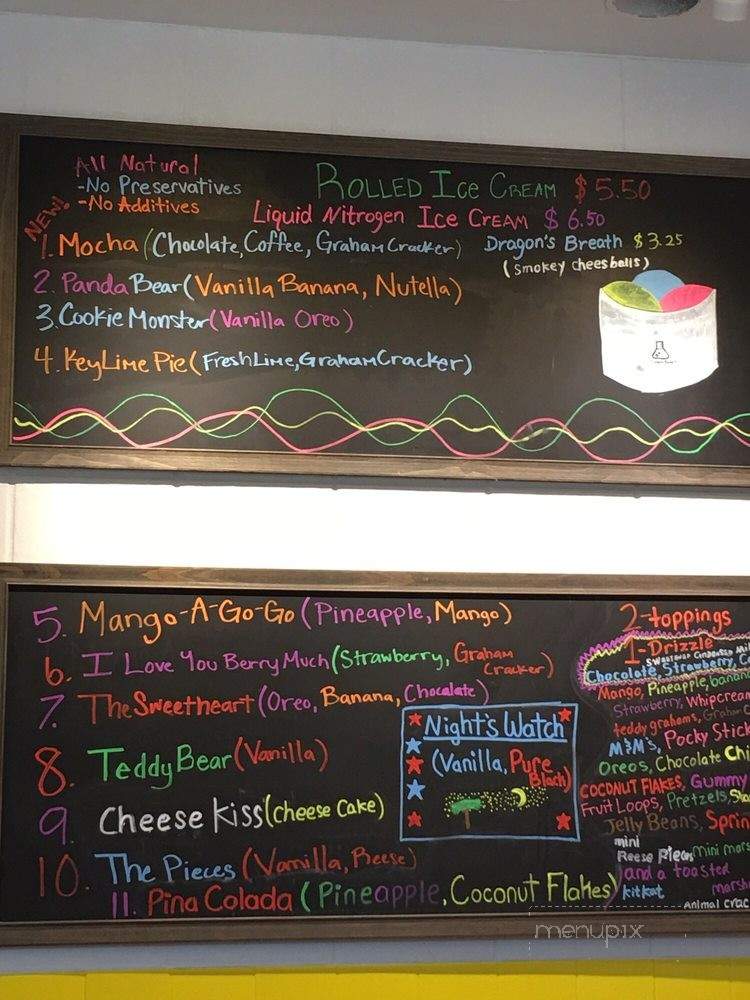 All Natural
-No Preservatives
-No Additives
NEW!
ROLLED ICE CREAM $5.50
Liquid Nitrogen Ice CREAM $6.50
1. Mocha (Chocolate, Coffee, Graham Cracker)
Dragon's Breath $3.25
(smokey cheesballs)
2. Panda Bear (Vanilla Banana, Nutella)
3. Cookie Monster (Vanilla Oreo)
4. Key Lime Pie (Fresh Lime, Graham Cracker)
5. Mango-A-Go-Go (Pineapple, Mango)
6. I Love You Berry Much (Strawberry, Graham Cracker)
7. The Sweetheart (Oreo, Banana, Chocolate)
8. Teddy Bear (Vanilla)
9. Cheese Kiss (cheese Cake)
10. The Pieces (Vanilla, Reese)
11. Pina Colada (Pineapple, Coconut Flakes)
Night's Watch
(Vanilla, Pure Black)
2-toppings
1-Drizzle
Sweetened Condensed Mil
Chocolate, Strawberry, C
Mango, Pineapple, banana
Strawberry, Whipcrea
teddy grahams, Graham C
M&M's, Pocky Stick
Oreos, Chocolate Chi
COCONUT FLAKES, Gummy
Fruit Loops, Pretzels,
Jelly Beans, Sprin
mini
Reese Pieces mini mars
and a toasted
marsh
kitkat
Animal crac
menupix